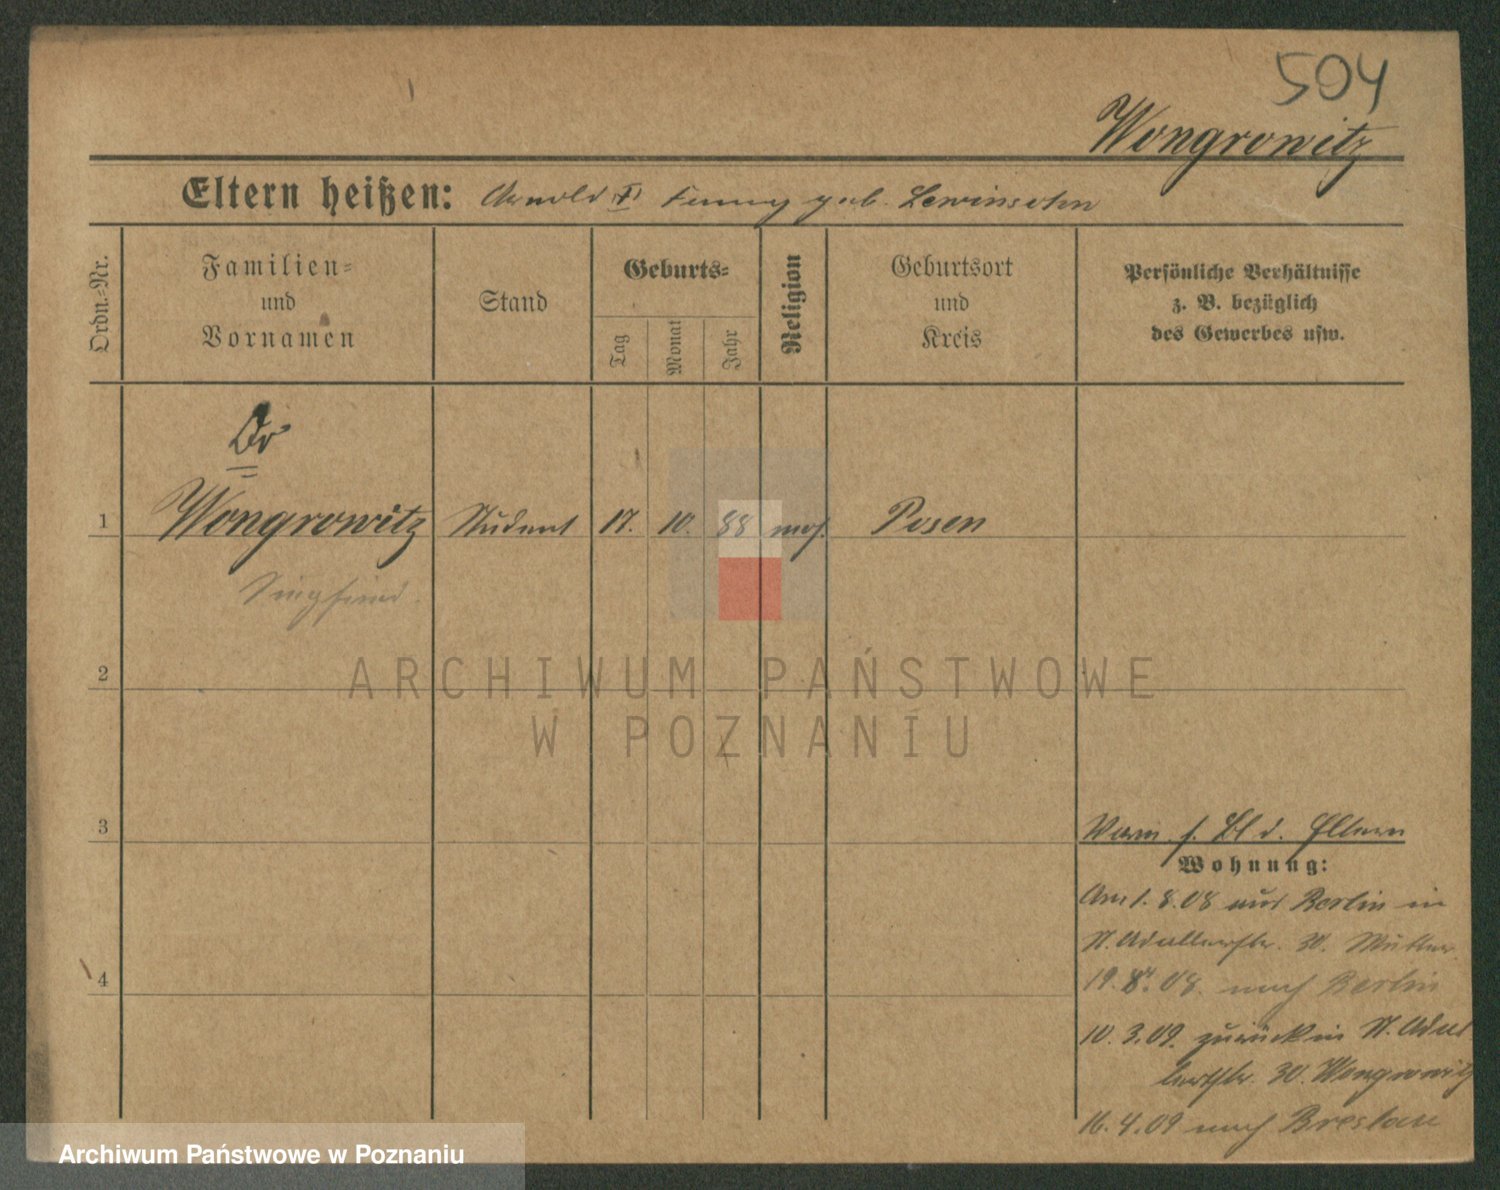 504
Wongrowitz
Eltern heißen: Arnold † Fenny geb. Lewinsohn
Ordn.-Nr.
Familien-
und
Vornamen
Stand
Geburts-
Tag
Monat
Jahr
Religion
Geburtsort
und
Kreis
Persönliche Verhältnisse
z. B. bezüglich
des Gewerbes usw.
Dr
1 Wongrowitz Student 17. 10. 88 mos. Posen
Siegfried.
2
ARCHIWUM PAŃSTWOWE
W POZNANIU
3
Vorm. s. Bl d. Eltern
Wohnung:
Am 1. 8. 08 aus Berlin in
St. Adalbertstr. 30. Mutter
4
19. 8. 08. nach Berlin
10. 3. 09. zurück in St. Adal
bertstr. 30. Wongrowitz
16. 4. 09 nach Breslau
Archiwum Państwowe w Poznaniu